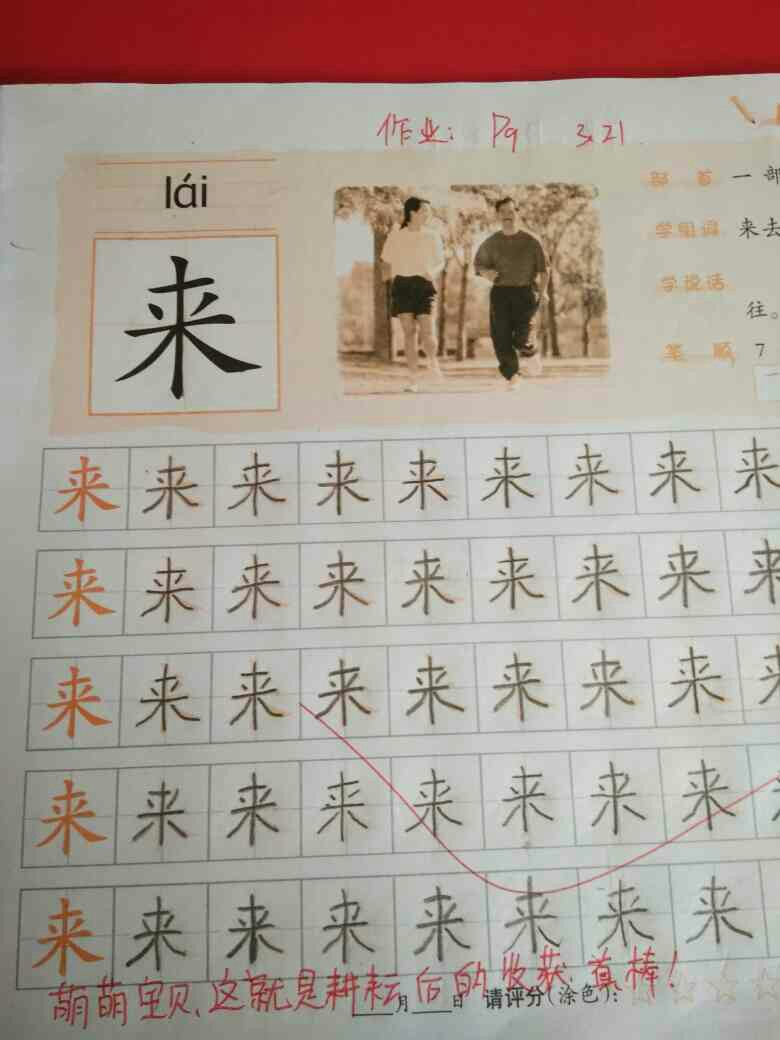 作业： P9 3.21
lái
来
部首 一部
学组词 来去
学说话
往。
笔顺 7
来 来 来 来 来 来 来 来 来
来 来 来 来 来 来 来 来 来
来 来 来 来 来 来 来 来 来
来 来 来 来 来 来 来 来
来 来 来 来 来 来 来 来
萌萌宝贝，这就是耕耘后的收获，真棒！
月 日 请评分（涂色）：